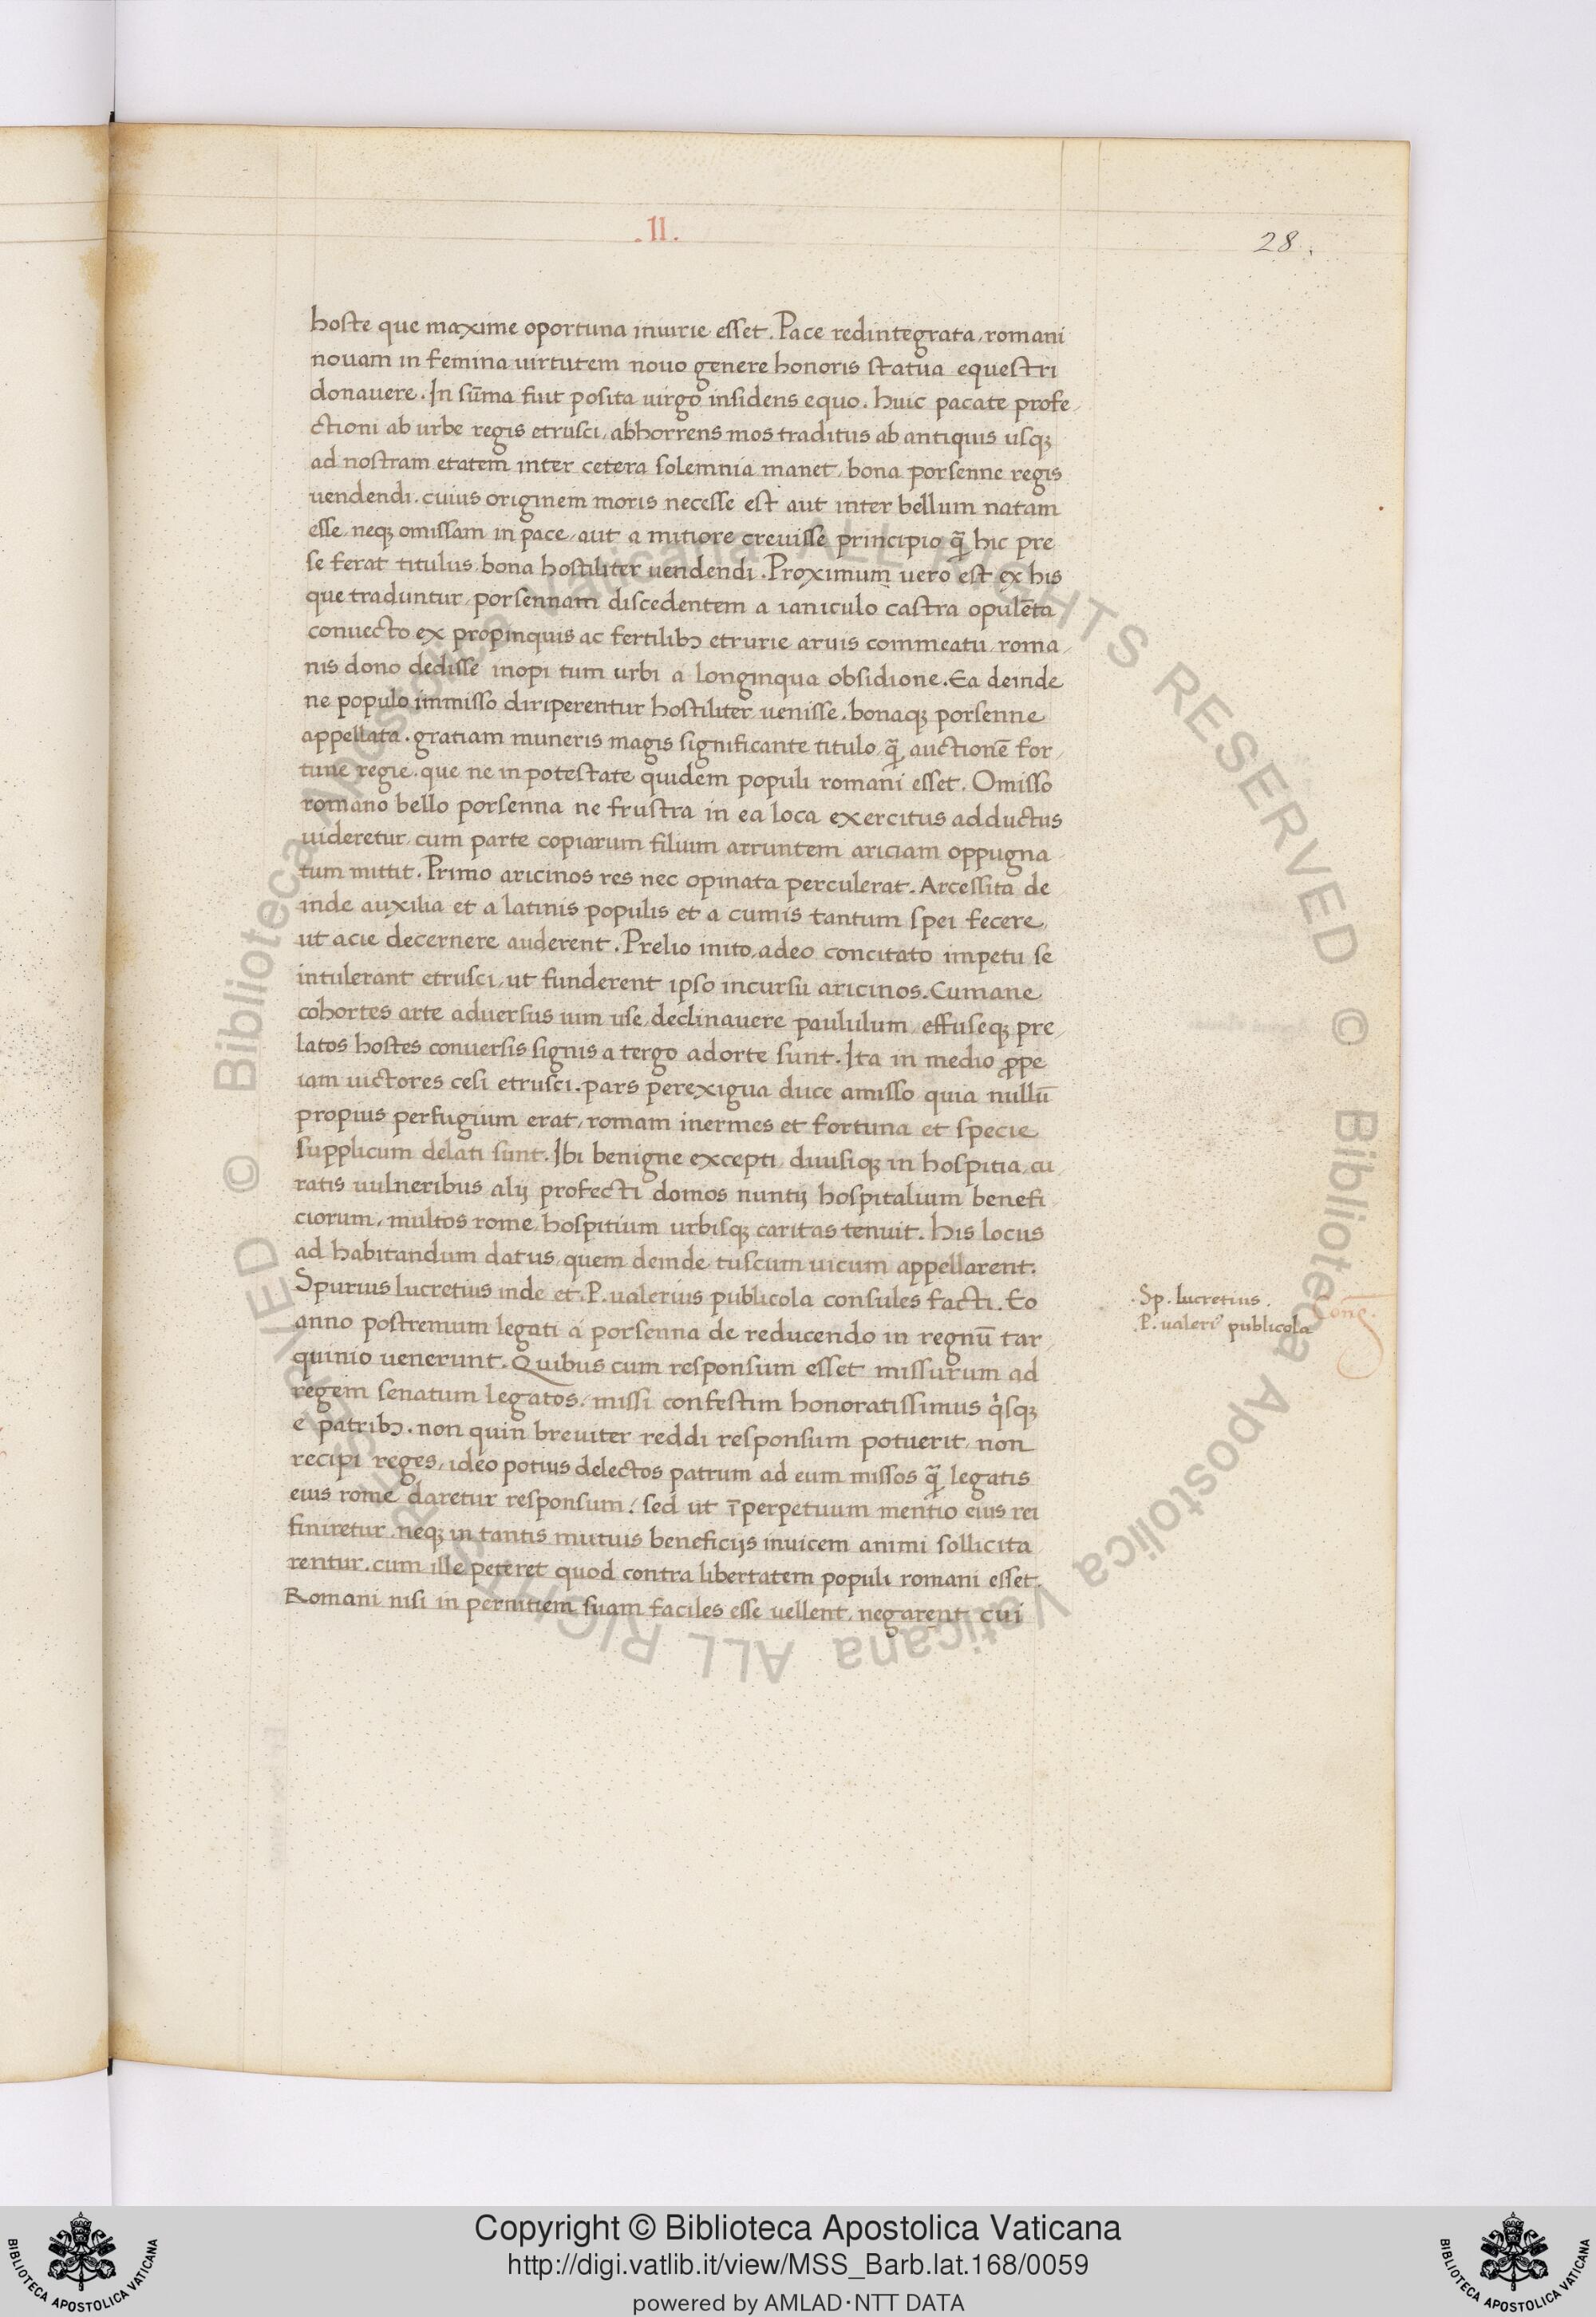 .II.
28.
hoste que maxime oportuna iniurie esset. Pace redintegrata, romani
nouam in femina uirtutem nouo genere honoris statua equestri
donauere. In sūma fuit posita uirgo insidens equo. huic pacate profe,
ctioni ab urbe regis etrusci, abhorrens mos traditus ab antiquis usqꝫ
ad nostram etatem inter cetera solemnia manet, bona porsenne regis
uendendi. cuius originem moris necesse est aut inter bellum natam
esse, neqꝫ omissam in pace, aut a mitiore creuisse principio q̄ hic pre
se ferat titulus, bona hostiliter uendendi. Proximum uero est ex his
que traduntur, porsennam discedentem a ianiculo castra opulēta
conuecto ex propinquis ac fertilibꝫ etrurie aruis commeatu, roma,
nis dono dedisse inopi tum urbi a longinqua obsidione. Ea deinde
ne populo immisso diriperentur hostiliter uenisse, bonaqꝫ porsenne
appellata. gratiam muneris magis significante titulo, q̄ auctionē for,
tune regie. que ne in potestate quidem populi romani esset. Omisso
romano bello porsenna ne frustra in ea loca exercitus adductus
uideretur, cum parte copiarum filium arruntem ariciam oppugna,
tum mittit. Primo aricinos res nec opinata perculerat. Arcessita de
inde auxilia et a latinis populis et a cumis tantum spei fecere,
ut acie decernere auderent. Prelio inito, adeo concitato impetu se
intulerant etrusci, ut funderent ipso incursu aricinos. Cumane
cohortes arte aduersus uim use, declinauere paululum, effuseqꝫ pre,
latos hostes conuersis signis a tergo adorte sunt. Ita in medio ꝓpe
iam uictores cesi etrusci. pars perexigua duce amisso quia nullū
propius perfugium erat, romam inermes et fortuna et specie
supplicum delati sunt. Ibi benigne excepti, diuisiqꝫ in hospitia, cu,
ratis uulneribus alij profecti domos nuntij hospitalium benefi
ciorum, multos rome, hospitium urbisqꝫ caritas tenuit. his locus
ad habitandum datus, quem deinde tuscum uicum appellarent.
Spurius lucretius inde et. P. ualerius publicola consules facti. Eo
anno postremum legati a porsenna de reducendo in regnū tar,
quinio uenerunt. Quibus cum responsum esset missurum ad
regem senatum legatos, missi confestim honoratissimus q̇sqꝫ
e patribꝫ. non quin breuiter reddi responsum potuerit, non
recipi reges, ideo potius delectos patrum ad eum missos q̄ legatis
eius rome daretur responsum, sed ut ī perpetuum mentio eius rei
finiretur, neqꝫ in tantis mutuis beneficijs inuicem animi sollicita
rentur, cum ille peteret quod contra libertatem populi romani esset.
Romani nisi in pernitiem suam faciles esse uellent, negarent, cui
.Sp. lucretius.
.P. ualeriꝰ publicola
Conſ.
© Biblioteca Apostolica Vaticana ALL RIGHTS RESERVED © Biblioteca Apostolica Vaticana ALL RIGHTS RESERVED
Copyright © Biblioteca Apostolica Vaticana
http://digi.vatlib.it/view/MSS_Barb.lat.168/0059
powered by AMLAD·NTT DATA
BIBLIOTECA APOSTOLICA VATICANA
BIBLIOTECA APOSTOLICA VATICANA